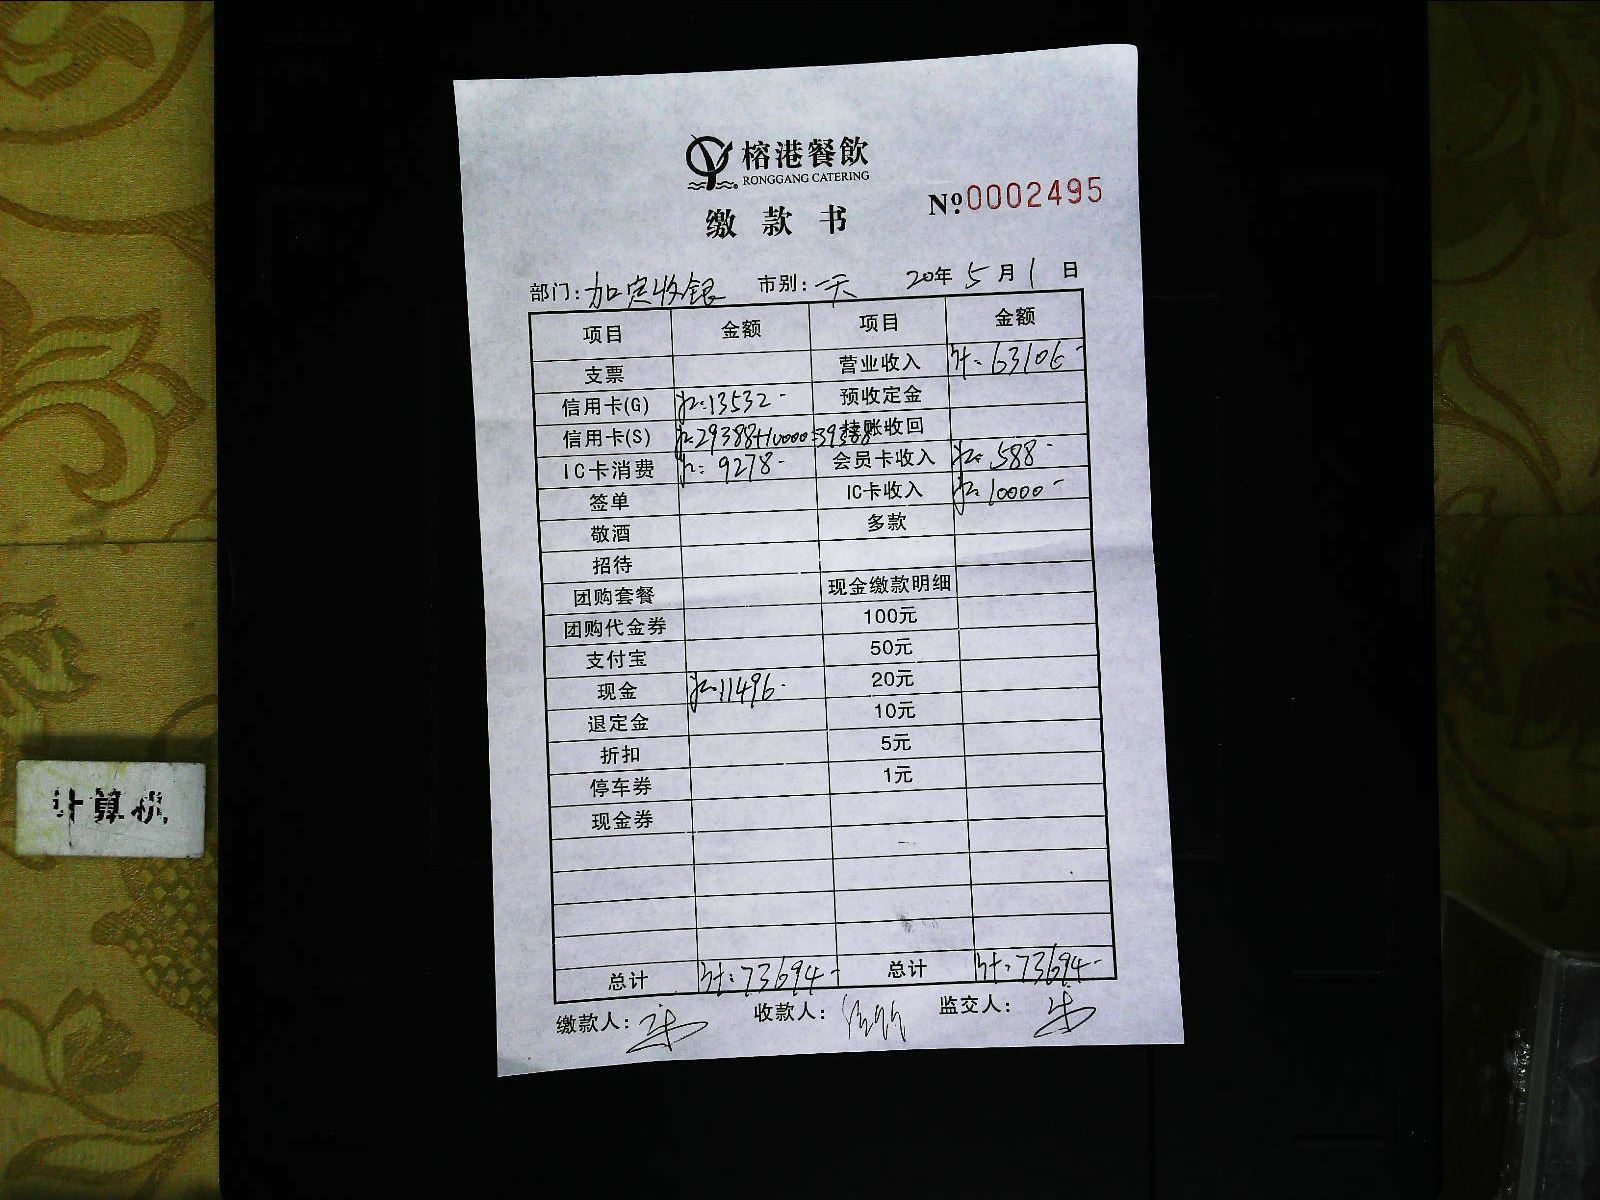 榕港餐飲
RONGGANG CATERING
缴款书
№0002495
部门: 加定收银 市别: 一天 20年 5月1日
项目 金额 项目 金额
支票 营业收入 计: 63106-
信用卡(G) 13532- 预收定金
信用卡(S) 29388+10000=39388 挂账收回
IC卡消费 9278- 会员卡收入 588-
签单 IC卡收入 10000-
敬酒 多款
招待
团购套餐 现金缴款明细
团购代金券 100元
支付宝 50元
现金 11496- 20元
退定金 10元
折扣 5元
停车券 1元
现金券
总计 计: 73694- 总计 计: 73694-
缴款人: 收款人: 监交人:
计算机